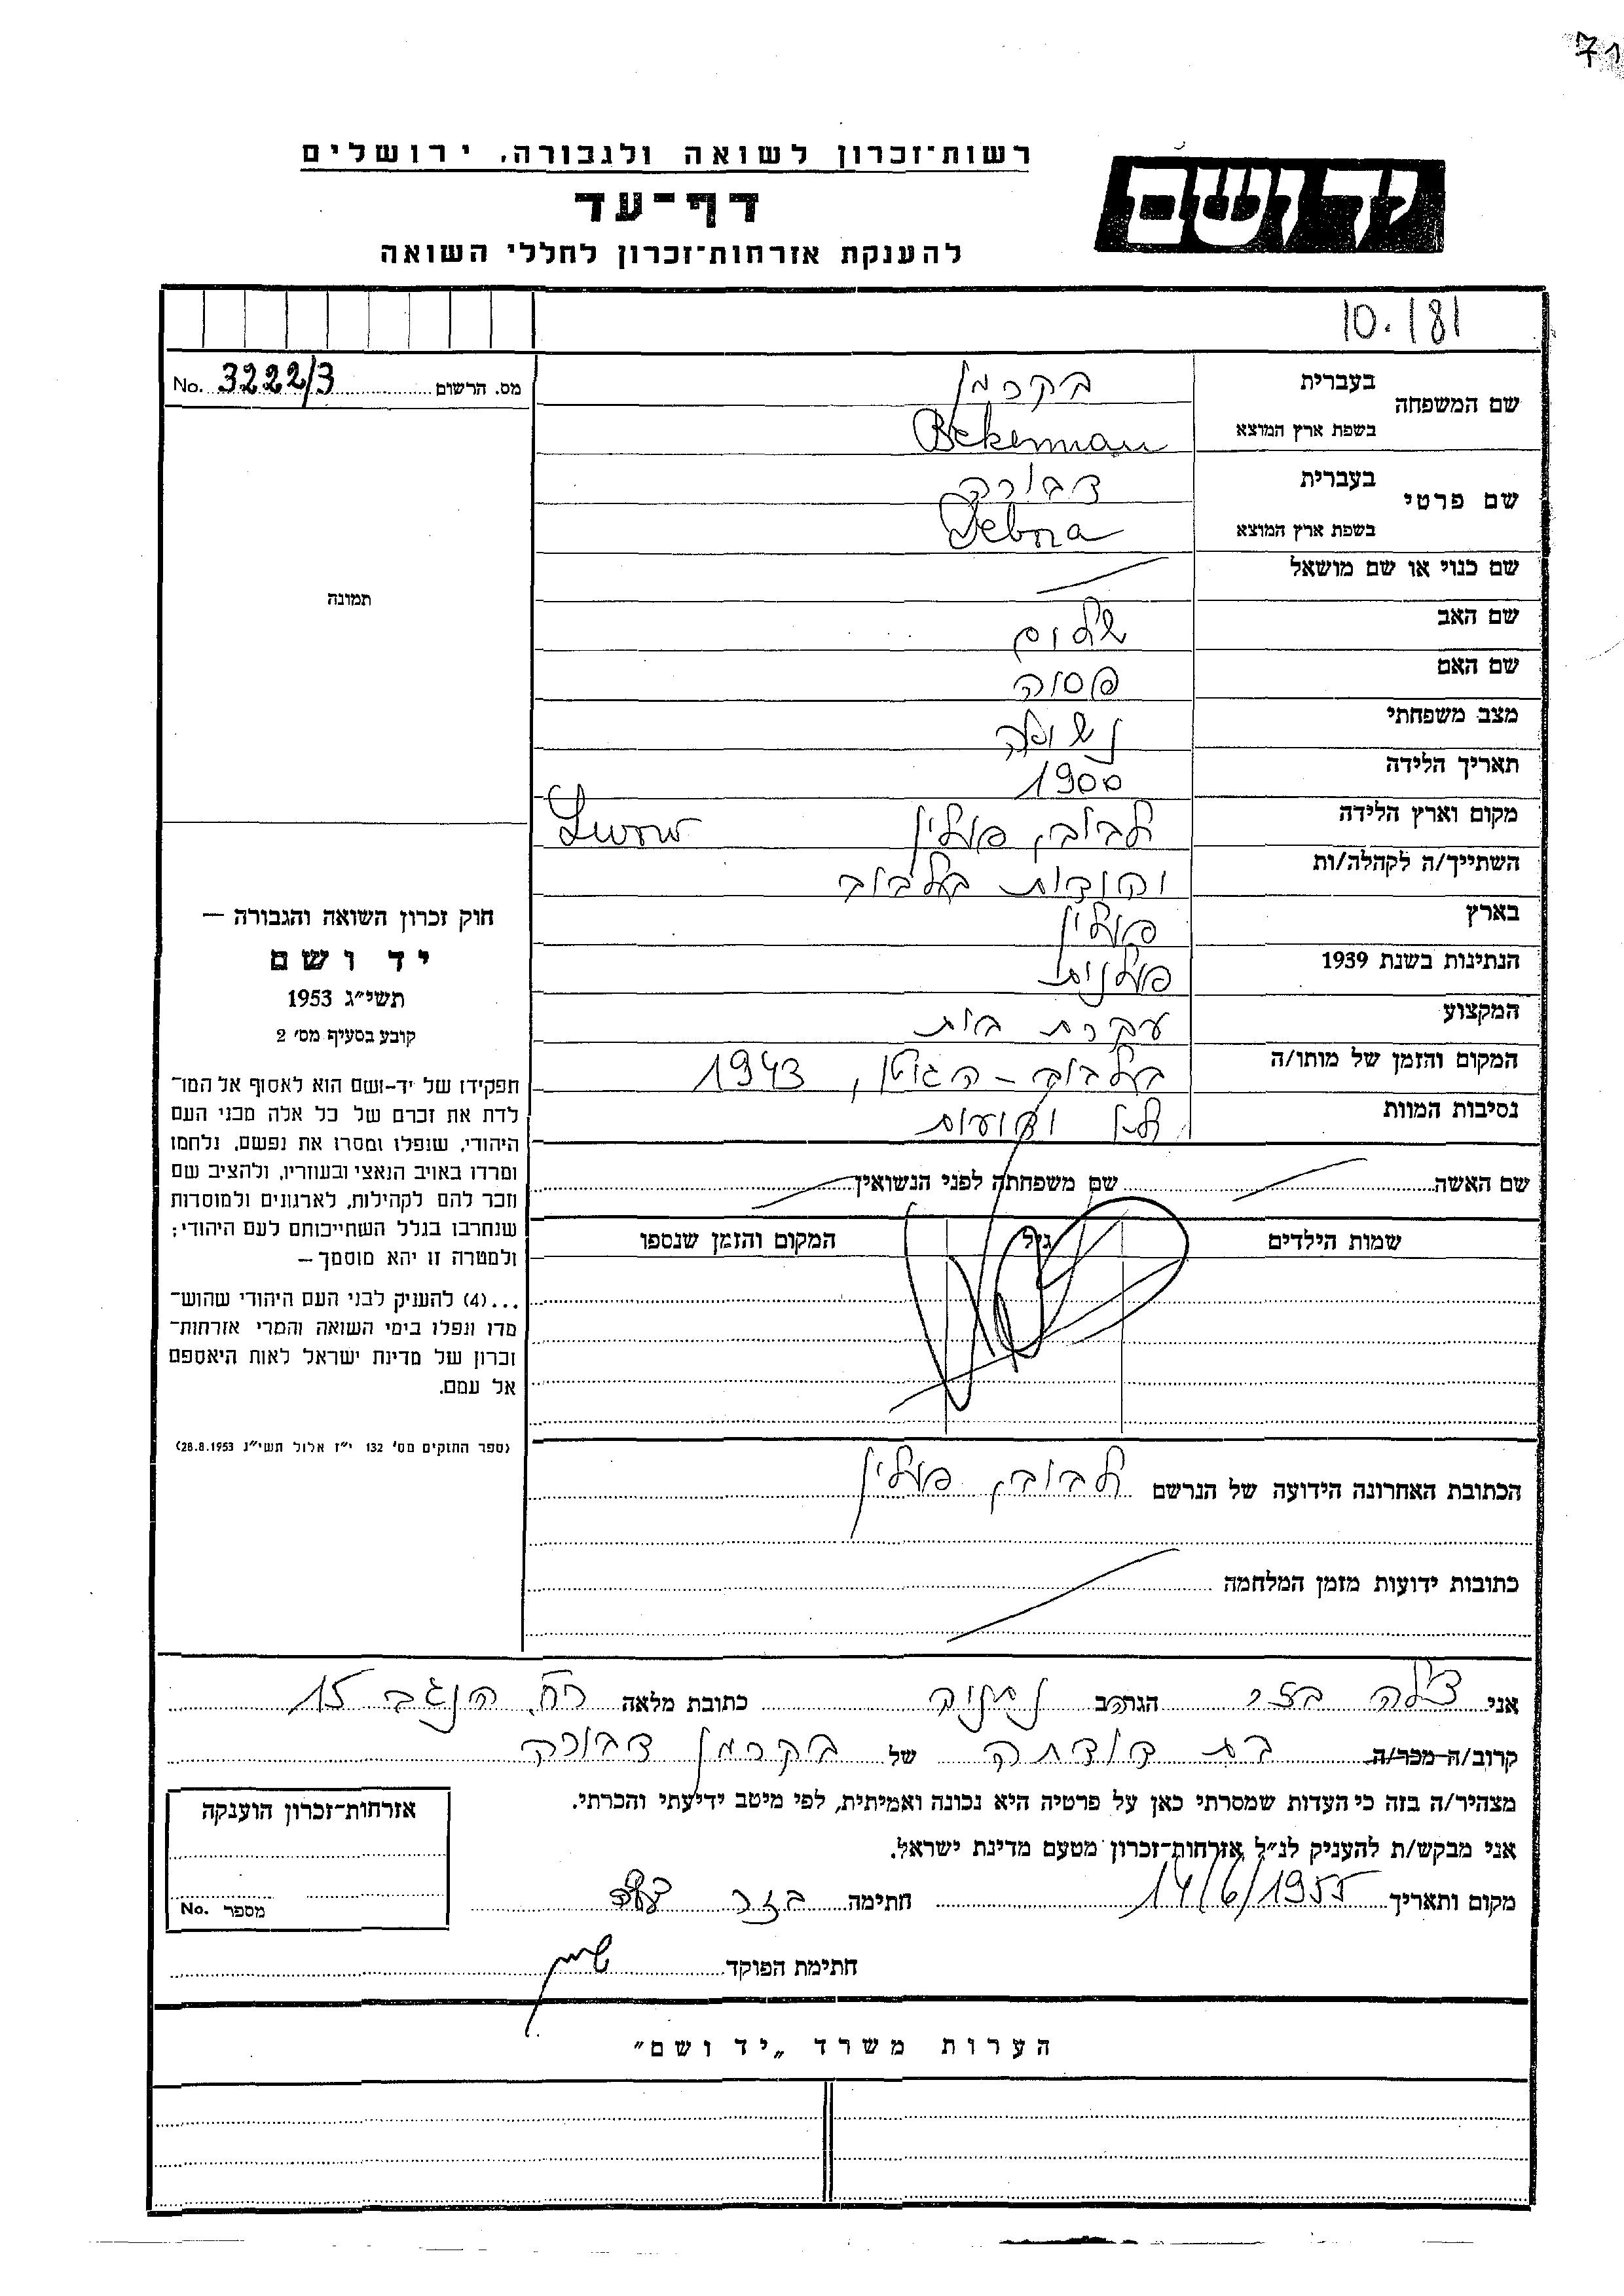 71
רשות־זכרון לשואה ולגבורה, ירושלים
יד ושם
דף־עד
להענקת אזרחות־זכרון לחללי השואה
10.181
מס. הרשום 3222/3 No.
שם המשפחה בעברית בקרמן
בשפת ארץ המוצא Bekerman
שם פרטי בעברית דבורה
בשפת ארץ המוצא Debora
שם כנוי או שם מושאל
תמונה
שם האב שלום
שם האם פסיה
מצב משפחתי נשואה
תאריך הלידה 1900
מקום וארץ הלידה לבוב, פולין Lwow
השתייך/ה לקהלה/ות יהודית בלבוב
בארץ פולין
הנתינות בשנת 1939 פולנית
המקצוע עקרת בית
המקום והזמן של מותו/ה בלבוב - הגיטו, 1943
נסיבות המוות לא ידועות
שם האשה שם משפחתה לפני הנשואין
שמות הילדים גיל המקום והזמן שנספו
הכתובת האחרונה הידועה של הנרשם לבוב, פולין
כתובות ידועות מזמן המלחמה
חוק זכרון השואה והגבורה —
יד ושם
תשי״ג 1953
קובע בסעיף מס׳ 2
תפקידו של יד-ושם הוא לאסוף אל המו־
לדת את זכרם של כל אלה מבני העם
היהודי, שנפלו ומסרו את נפשם, נלחמו
ומרדו באויב הנאצי ובעוזריו, ולהציב שם
וזכר להם לקהילות, לארגונים ולמוסדות
שנחרבו בגלל השתייכותם לעם היהודי;
ולמטרה זו יהא מוסמך —
...(4) להעניק לבני העם היהודי שהוש־
מדו ונפלו בימי השואה והמרי אזרחות־
זכרון של מדינת ישראל לאות היאספם
אל עמם.
(ספר החוקים מס׳ 132 י״ז אלול תשי״ג 28.8.1953)
אני צילה בזר הגרה ב נתניה כתובת מלאה רח. הנגב 15
קרוב/ה מכר/ה בת דודתה של בקרמן דבורה
מצהיר/ה בזה כי העדות שמסרתי כאן על פרטיה היא נכונה ואמיתית, לפי מיטב ידיעתי והכרתי.
אני מבקש/ת להעניק לנ״ל אזרחות־זכרון מטעם מדינת ישראל.
מקום ותאריך 14/6/1955 חתימה בזר צילה
אזרחות־זכרון הוענקה
מספר No.
חתימת הפוקד
הערות משרד „יד ושם״